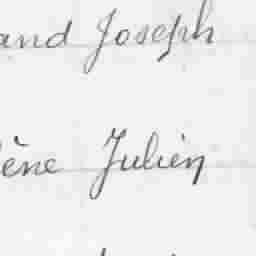 and Joseph
ène Julien